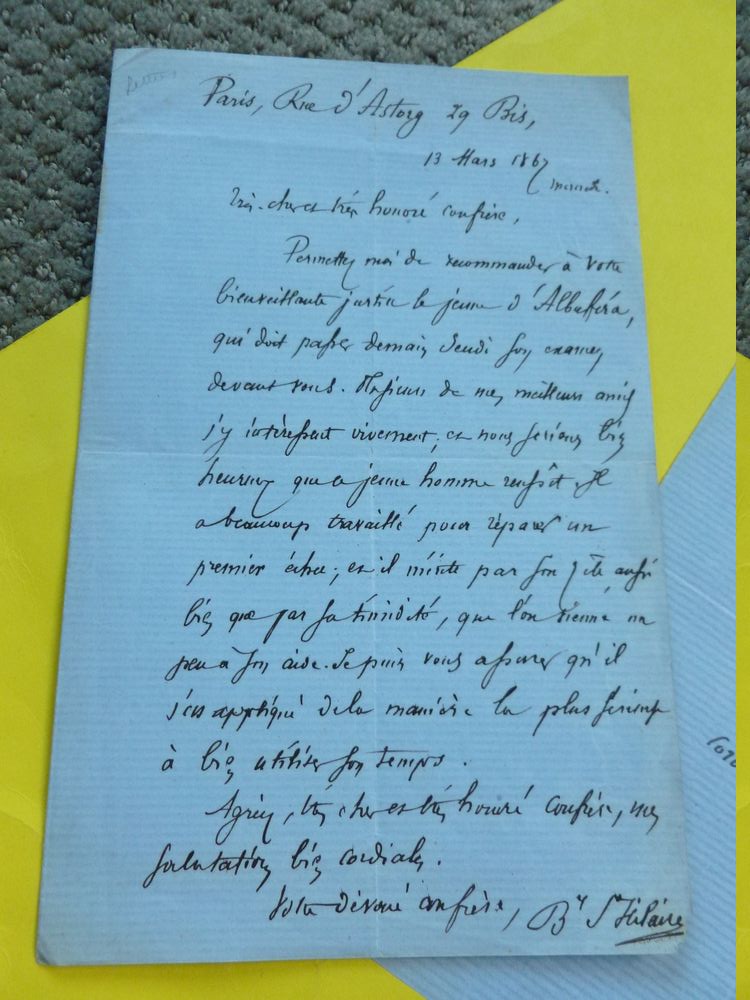 Paris, Rue d'Astorg 29 Bis,
13 Mars 1867
mercredi.
Très-cher et très honoré confrère,
Permettez moi de recommander à votre
bienveillante justice le jeune d'Albuféra,
qui doit passer demain Jeudi son examen
devant vous. Plusieurs de mes meilleurs amis
s'y intéressent vivement; et nous serions bien
heureux que ce jeune homme réussît. Il
a beaucoup travaillé pour réparer un
premier échec; et il mérite par son zèle aussi
bien que par sa timidité, que l'on vienne un
peu à son aide. Je puis vous assurer qu'il
s'est appliqué de la manière la plus sérieuse
à bien utiliser son temps.
Agréez, très cher et très honoré confrère, mes
salutations bien cordiales.
Votre dévoué confrère, By St Hilaire